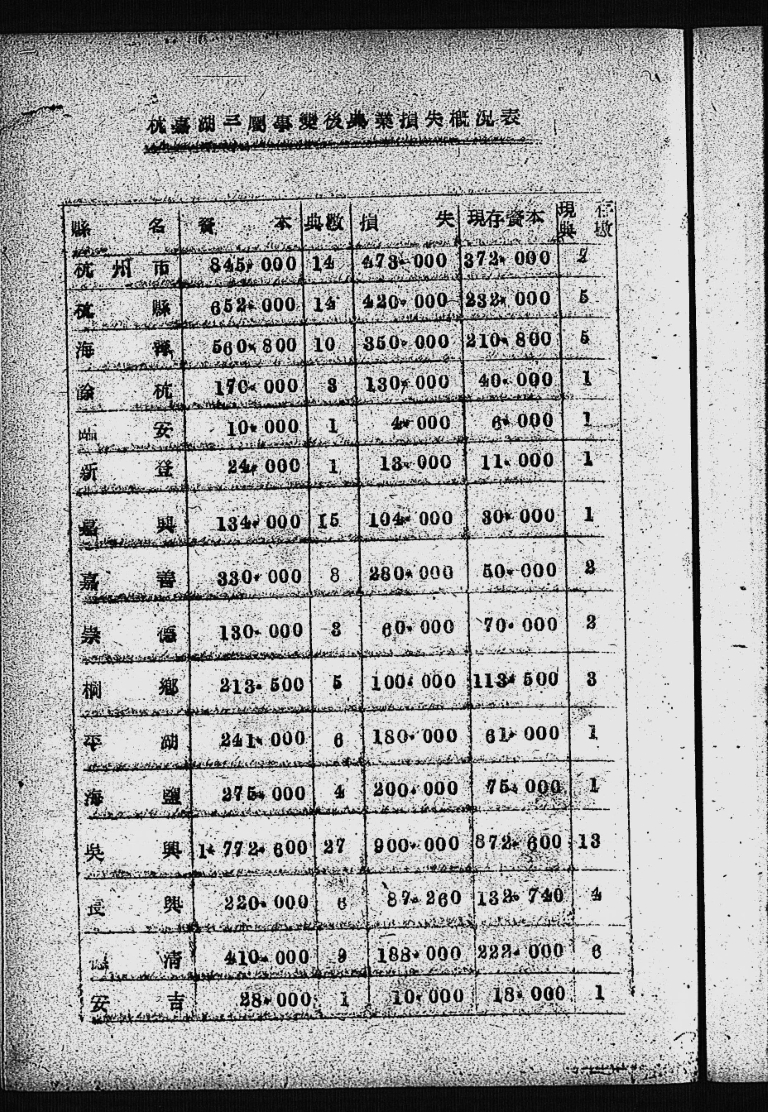 杭嘉湖三屬事變後典業損失概況表
縣名 資本 典數 損失 現存資本 現存典數
杭州市 845,000 14 473,000 372,000
杭縣 652,000 14 420,000 232,000 5
海寧 560,800 10 350,000 210,800 5
餘杭 170,000 3 130,000 40,000 1
臨安 10,000 1 4,000 6,000 1
新登 24,000 1 13,000 11,000 1
嘉興 134,000 15 104,000 30,000 1
嘉善 330,000 8 280,000 50,000 2
崇德 130,000 3 60,000 70,000 2
桐鄉 213,500 5 100,000 113,500 3
平湖 241,000 6 180,000 61,000 1
海鹽 275,000 4 200,000 75,000 1
吳興 1,772,600 27 900,000 872,600 13
長興 220,000 6 87,260 132,740 4
德清 410,000 9 188,000 222,000 6
安吉 28,000 1 10,000 18,000 1